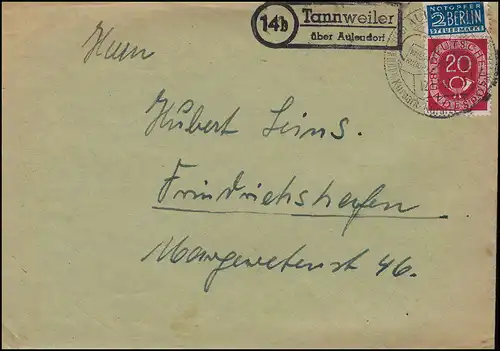 14b
Tannweiler
über Aulendorf
NOTOPFER
2 BERLIN
STEUERMARKE
DEUTSCHE
20
BUNDESPOST
Herrn
Hubert Seins.
Friedrichshafen
Margeretenst 46.